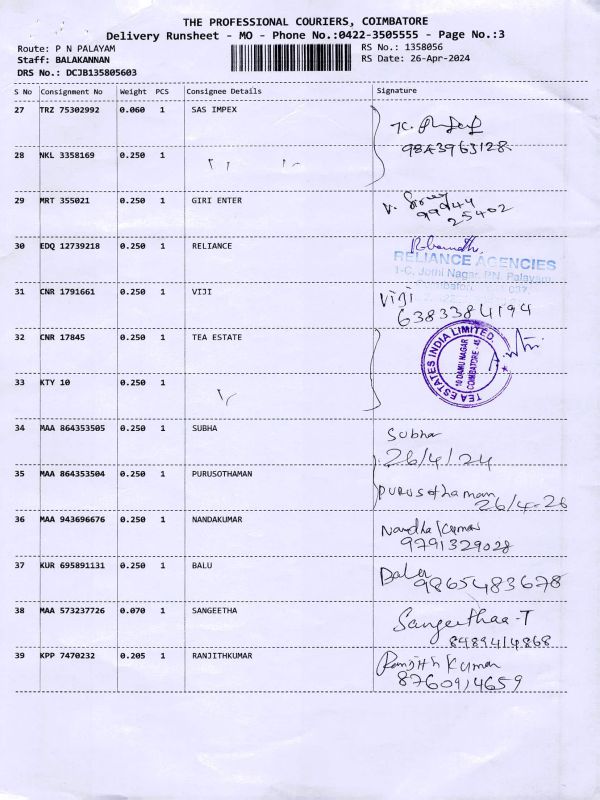 THE PROFESSIONAL COURIERS, COIMBATORE
Delivery Runsheet - MO - Phone No.:0422-3505555 - Page No.:3
Route: P N PALAYAM RS No.: 1358056
Staff: BALAKANNAN RS Date: 26-Apr-2024
DRS No.: DCJB135805603
S No Consignment No Weight PCS Consignee Details Signature
27 TRZ 75302992 0.060 1 SAS IMPEX
9843963128
28 NKL 3358169 0.250 1
29 MRT 355021 0.250 1 GIRI ENTER V.
99944
25402
30 EDQ 12739218 0.250 1 RELIANCE
RELIANCE AGENCIES
1-C, Jothi Nagar, P.N. Palayam,
31 CNR 1791661 0.250 1 VIJI Viji
6383384194
32 CNR 17845 1 0.250 1 TEA ESTATE
TEA ESTATES INDIA LIMITED.
10 DAMU NAGAR
COIMBATORE - 45
33 KTY 10 0.250 1
34 MAA 864353505 0.250 1 SUBHA Subha
26/4/24
35 MAA 864353504 0.250 1 PURUSOTHAMAN Purusothaman
26/4-26
36 MAA 943696676 0.250 1 NANDAKUMAR Nandha Kumar
9791329028
37 KUR 695891131 0.250 1 BALU Balu
9865483678
38 MAA 573237726 0.070 1 SANGEETHA Sangeethaa-T
8489414868
39 KPP 7470232 0.205 1 RANJITHKUMAR Ranjith Kumar
8760914659